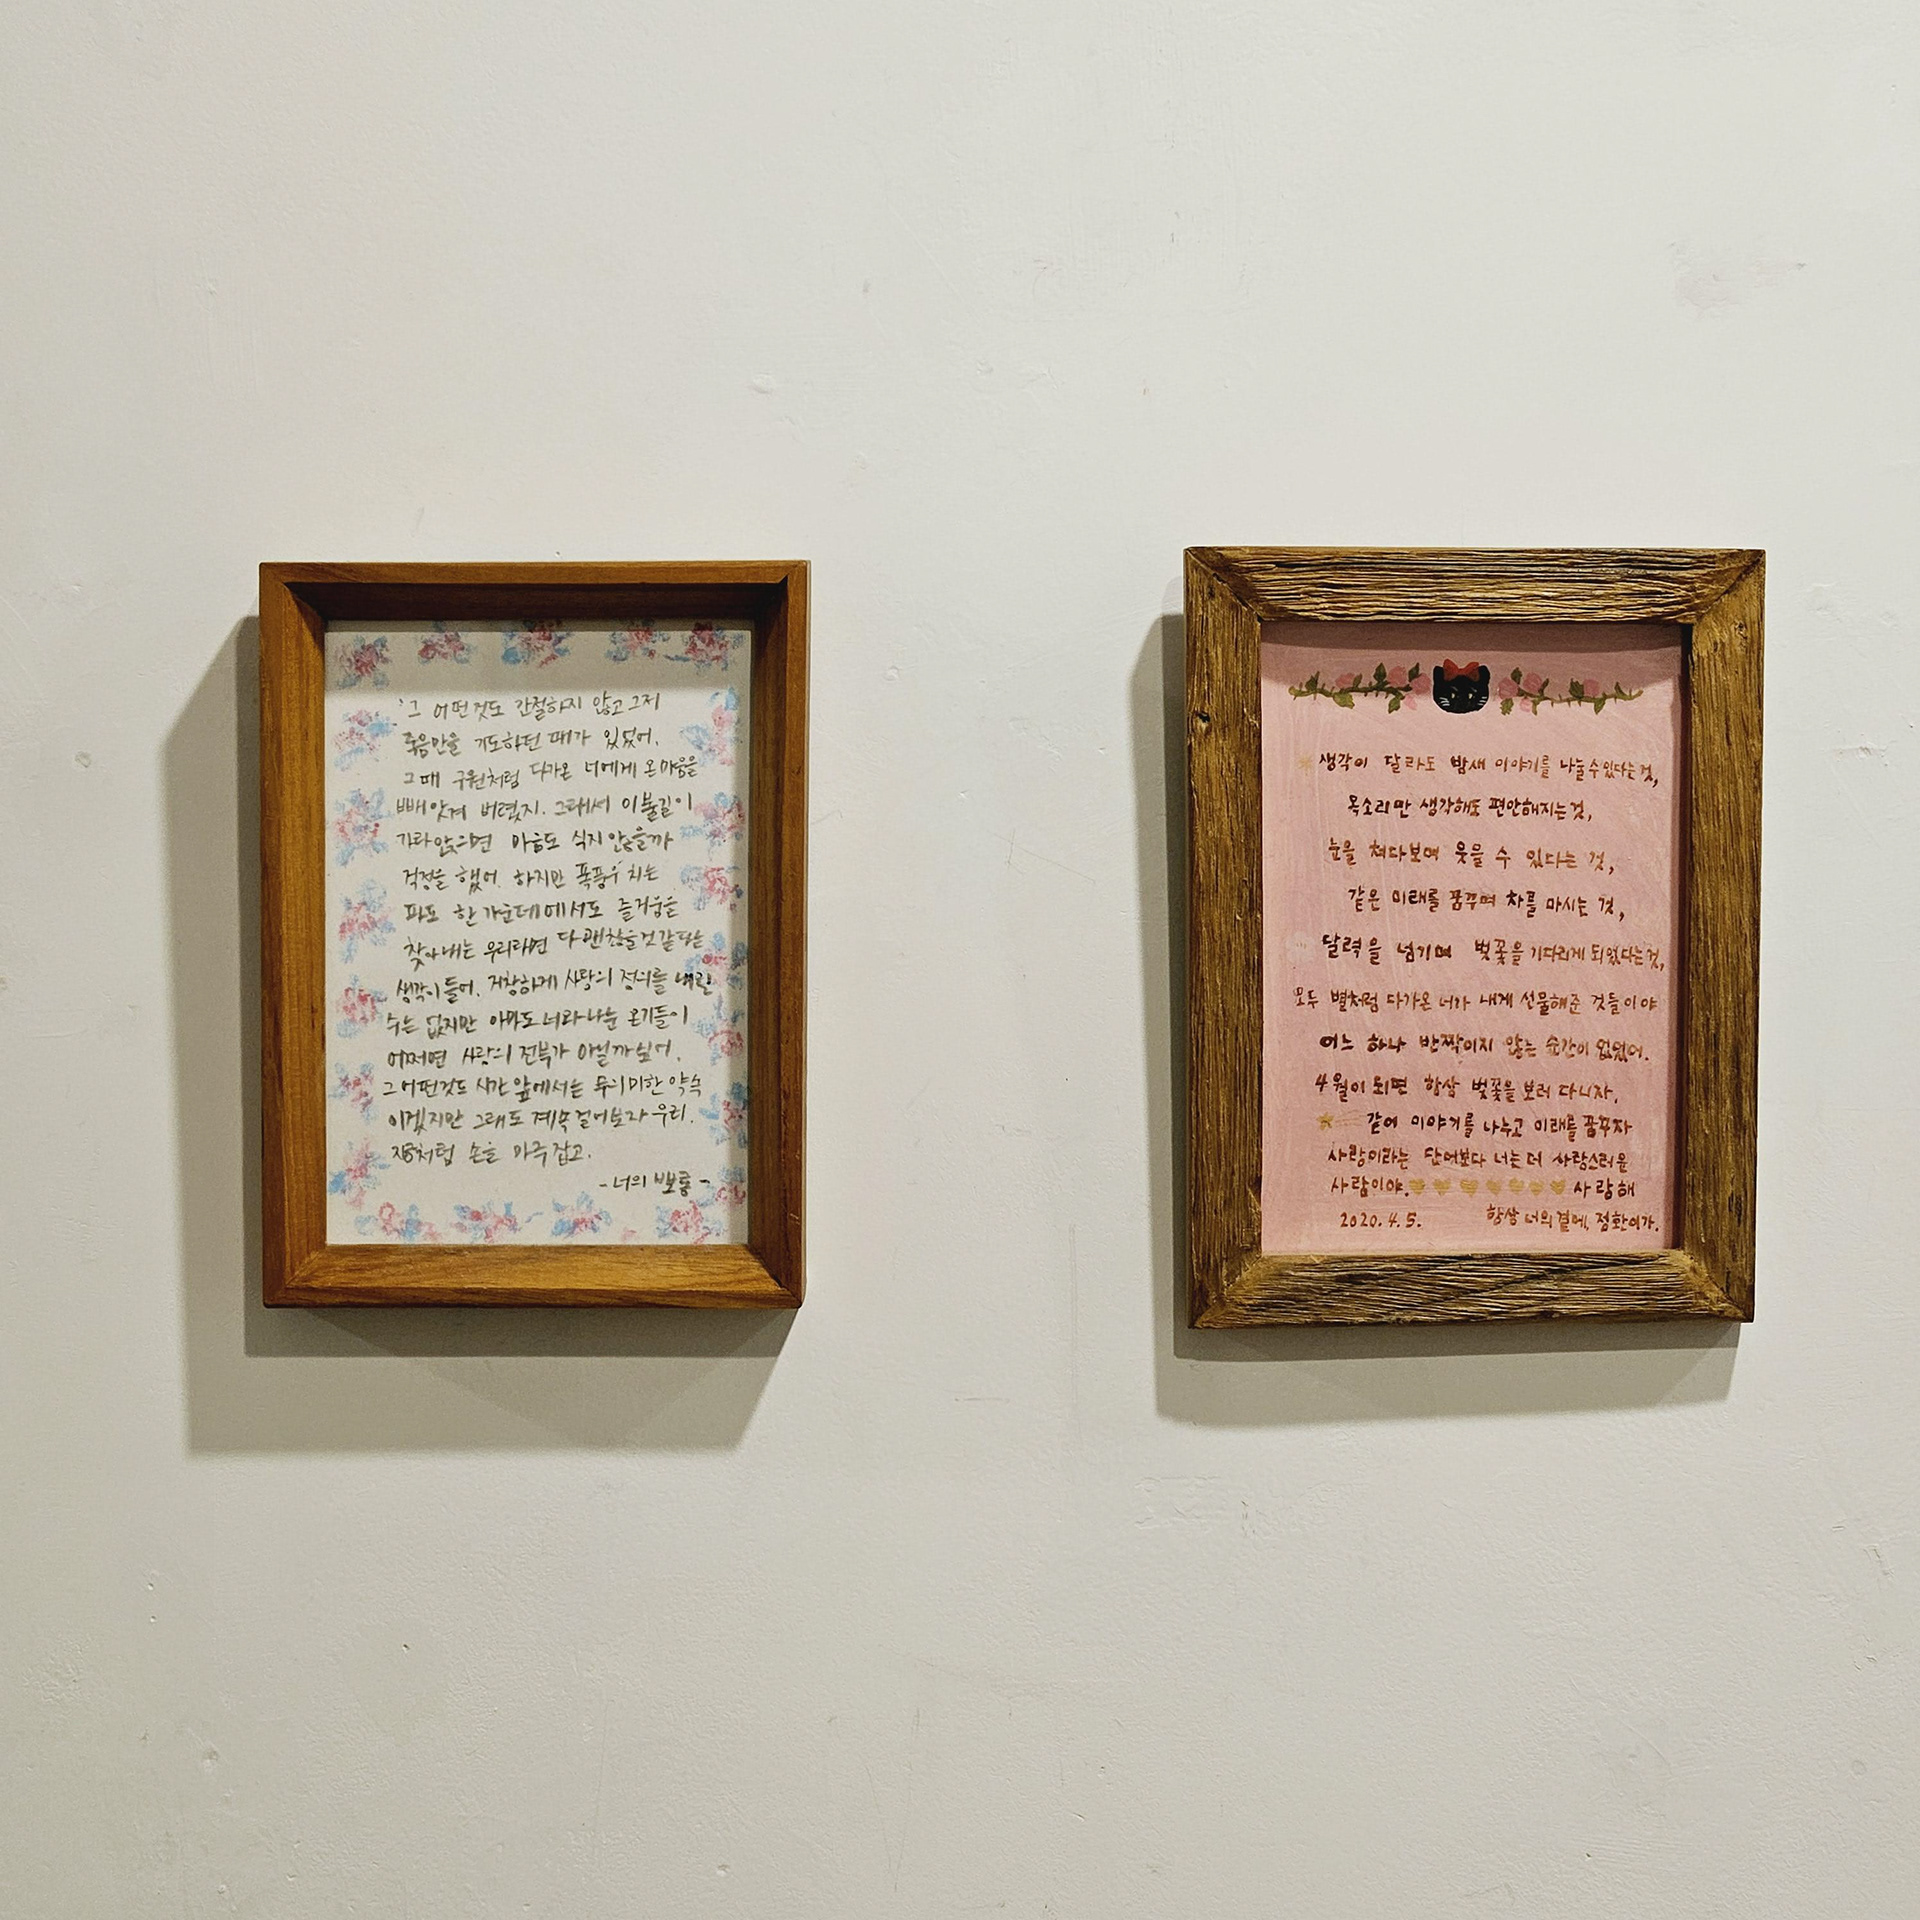 '그 어떤것도 간절하지 않고 그저
죽음만을 기도하던 때가 있었어.
그때 구원처럼 다가온 너에게 온마음을
빼앗겨 버렸지. 그래서 이불길이
가라앉으면 마음도 식지않을까
걱정을 했어. 하지만 폭풍우 치는
파도 한가운데에서도 즐거움을
찾아내는 우리라면 다괜찮을것같다는
생각이들어. 거창하게 사랑의 정의를 내릴
수는 없지만 아마도 너와 나눈 온기들이
어쩌면 사랑의 전부가 아닐까싶어.
그어떤것도 시간 앞에서는 무의미한 약속
이겠지만 그래도 계속 걸어보자 우리.
지금처럼 손을 마주 잡고.
-너의 뽀통-
생각이 달라도 밤새 이야기를 나눌수있다는 것,
목소리만 생각해도 편안해지는것,
눈을 쳐다보며 웃을 수 있다는 것,
같은 미래를 꿈꾸며 차를 마시는 것,
달력을 넘기며 벚꽃을 기다리게 되었다는것,
모두 별처럼 다가온 너와 내게 선물해준 것들이야
어느 하나 반짝이지 않는 순간이 없었어.
4월이 되면 항상 벚꽃을 보러 다니자,
같이 이야기를 나누고 미래를 꿈꾸자
사랑이라는 단어보다 너는 더 사랑스러운
사람이야. 사랑해
2020.4.5. 항상 너의 곁에, 정환이가.